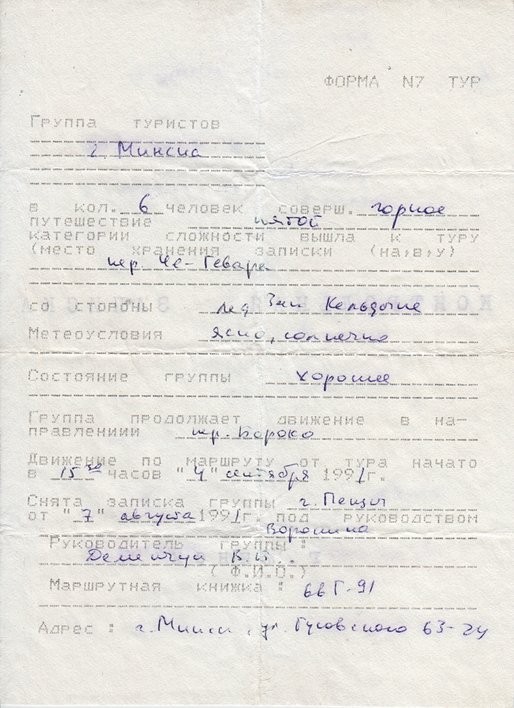 ФОРМА N7 ТУР
Группа туристов
г. Минска
в кол. 6 человек соверш. горное
путешествие пятой
категории сложности вышла к туру
(место хранения записки (на,в,у)
пер. Че-Гевара
со стороны лед. Зап. Кельдыке
Метеоусловия ясно, солнечно
Состояние группы хорошее
Группа продолжает движение в на-
правлениии пер.
Движение по маршруту от тура начато
в 15 30 часов "4" сентября 1991г.
Снята записка группы г.
от "7" августа 1991г. под руководством
Воронина
Руководитель группы :
Деменчук В.
( Ф.И.О.)
Маршрутная книжка: 66Г-91
Адрес : г. Минск, ул. Гусовского 63-24